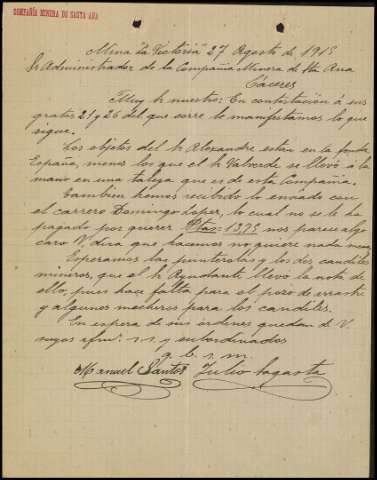 COMPAÑIA MINERA DE SANTA ANA
Mina "La Victoria" 27 Agosto de 1915
Sr Administrador de la Compañia Minera de Sta Ana
Cáceres
Muy Sr nuestro: En contestación á sus
gratas 21 y 26 del que corre le manifestamos lo que
sigue.
Los objetos del Sr Alexandre estan en la fonda
España, menos los que el Sr Valverde se llevó á la
mano en una talega que es de esta Compañia.
Tambien hemos recibido lo enviado con
el carrero Domingo Lopez, lo cual no se le ha
pagado por querer Ptas= 13,75 nos parece algo
caro V. dira que hacemos no quiere nada menos
Esperamos las punterolas y los dos candiles
mineros, que el Sr Ayudante llevó la nota de
ello, pues hace falta para el pozo de arrastre
y algunos mecheros para los candiles.
En espera de sus ordenes quedan de V.
suyos afmos. s. s. y subordinados
q. b. s. m.
Manuel Santos Julio Sagasta